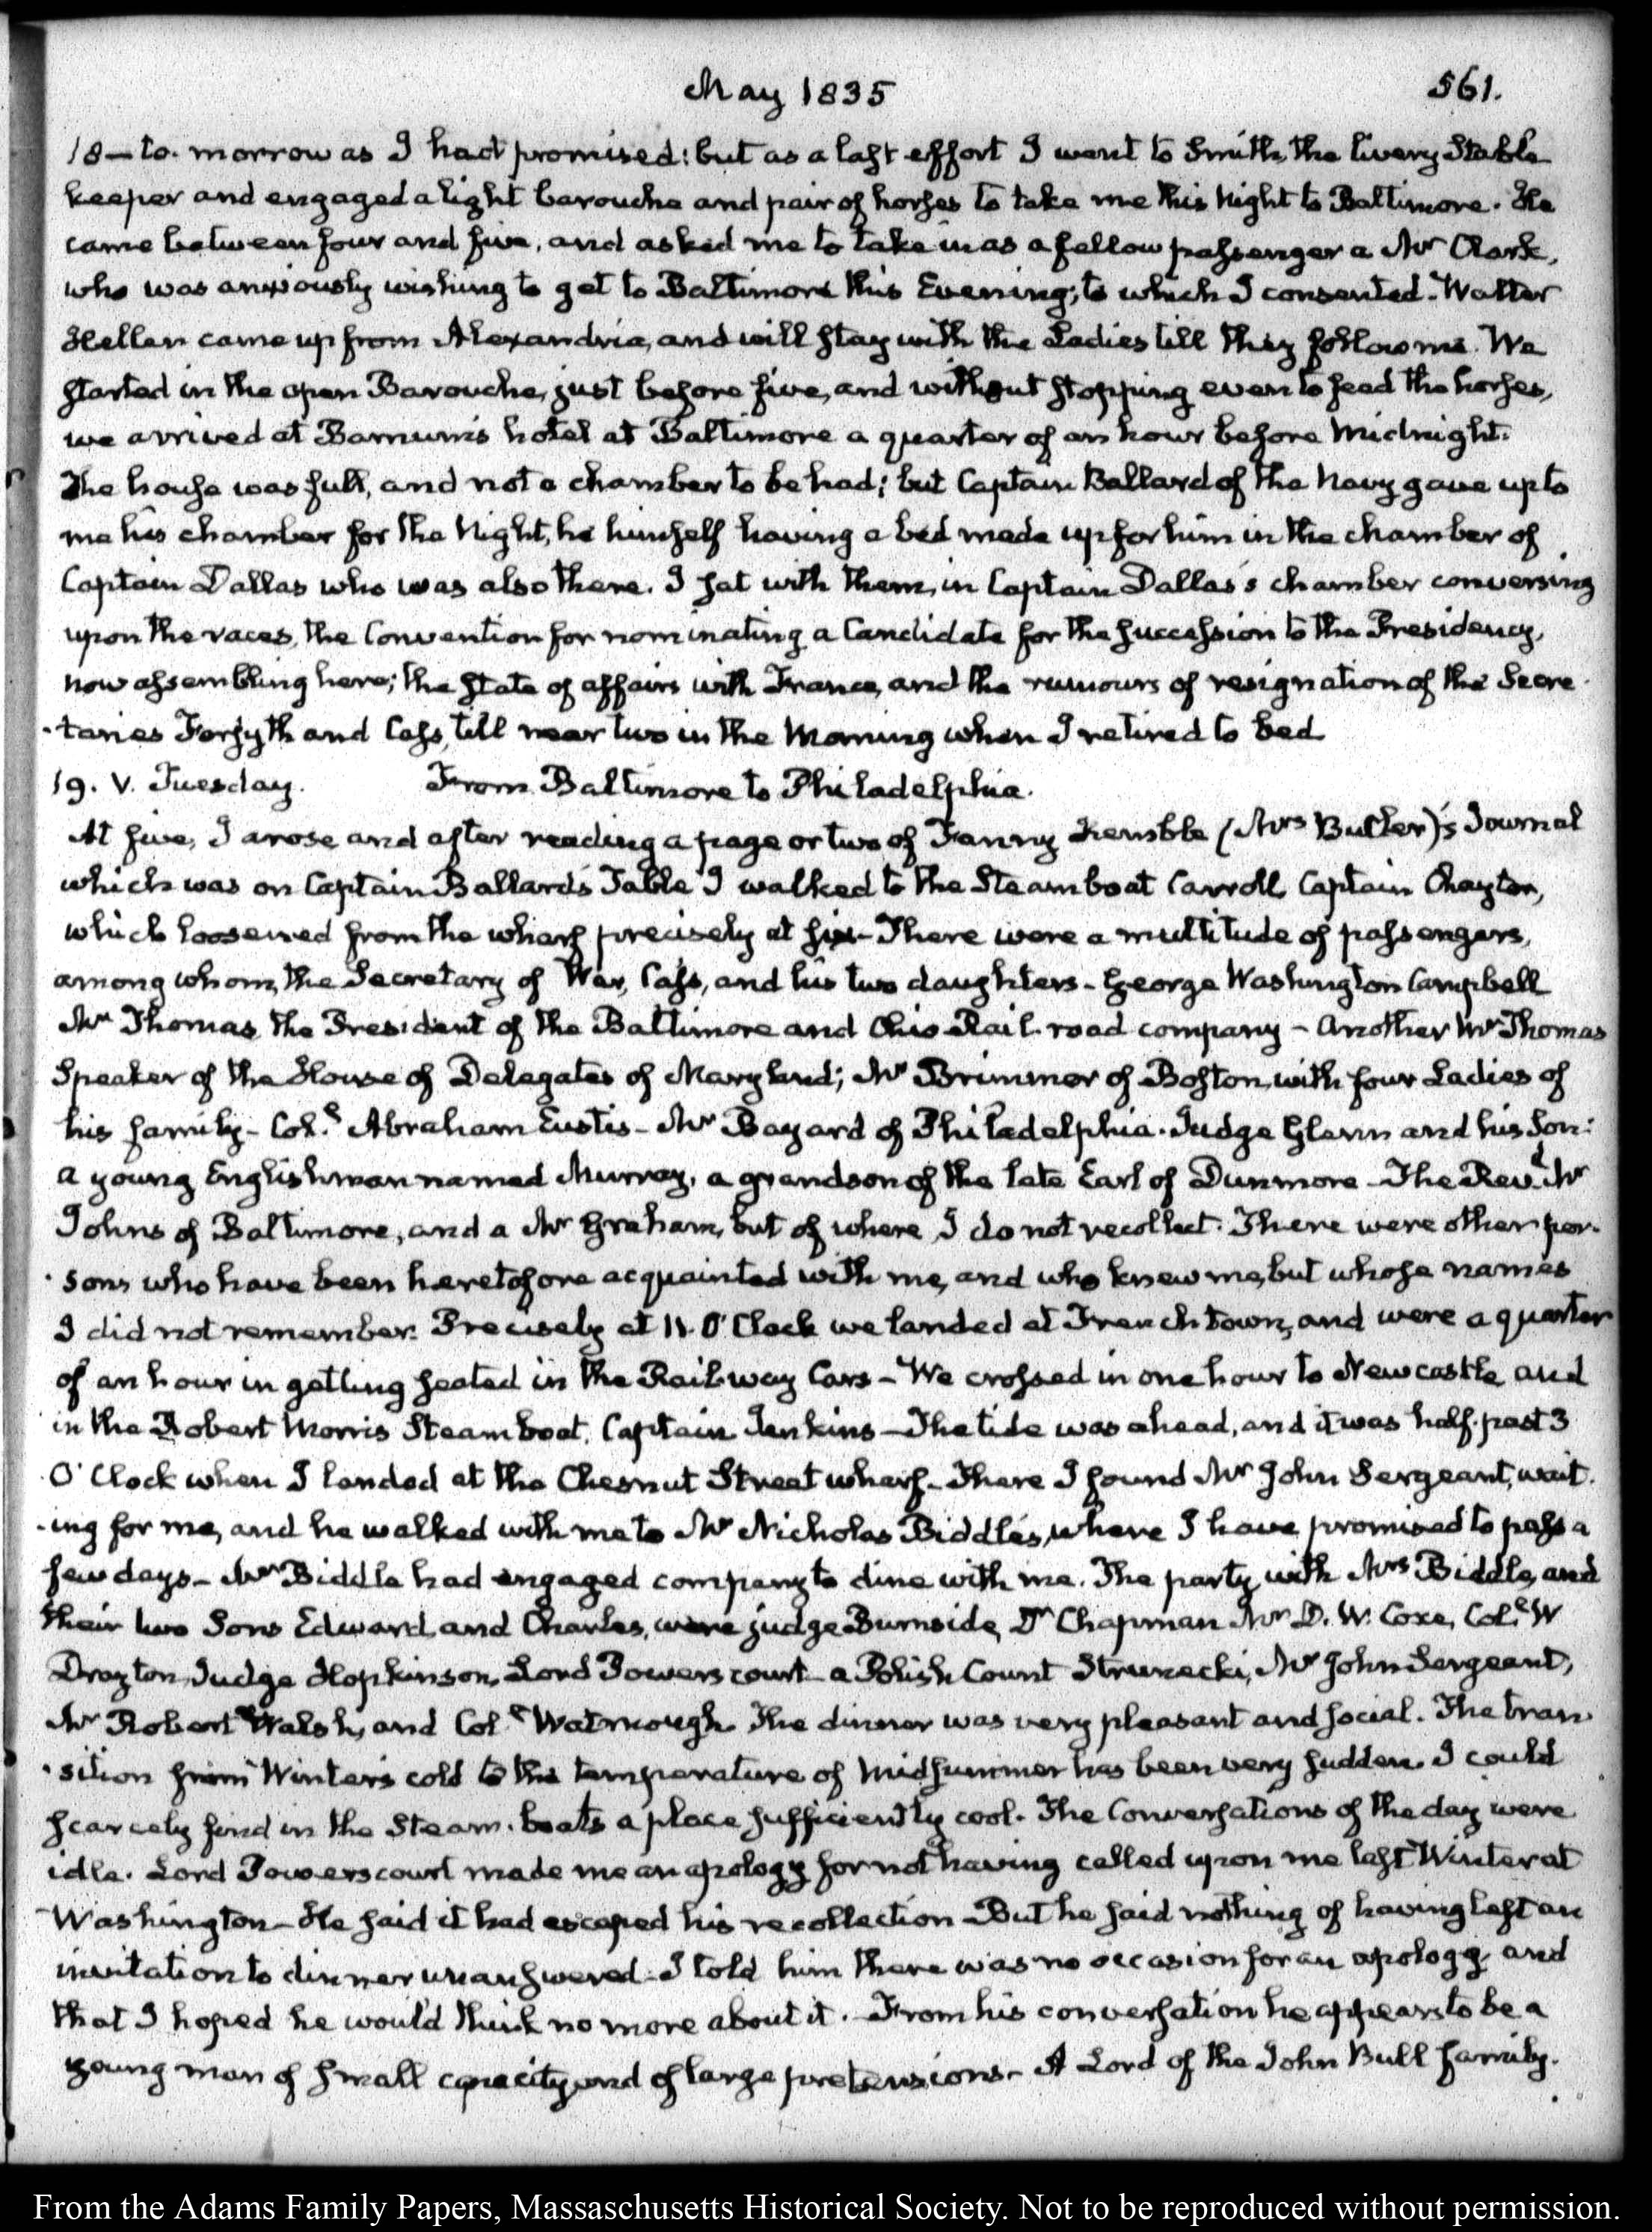 May 1835
561.
18 – to-morrow as I had promised: but as a last effort I went to Smith, the livery Stable
keeper and engaged a light barouche and pair of horses to take me this Night to Baltimore. He
came between four and five, and asked me to take in as a fellow passenger a Mr Clark,
who was anxiously wishing to get to Baltimore this Evening; to which I consented. Walter
Hellen came up from Alexandria, and will stay with the Ladies till they follow me. We
started in the open Barouche, just before five, and without stopping even to feed the horses,
we arrived at Barnum's hotel at Baltimore a quarter of an hour before Midnight.
The house was full, and not a chamber to be had; but Captain Ballard of the Navy gave up to
me his chamber for the Night, he himself having a bed made up for him in the chamber of
Captain Dallas who was also there. I sat with them, in Captain Dallas's chamber conversing
upon the races, the Convention for nominating a Candidate for the succession to the Presidency,
now assembling here; the state of affairs with France, and the rumours of resignation of the Secre-
-taries Forsyth and Cass, till near two in the Morning when I retired to bed
19. V. Tuesday. From Baltimore to Philadelphia.
At five, I arose and after reading a page or two of Fanny Kemble (Mrs Butler)'s Journal
which was on Captain Ballard's Table I walked to the Steamboat Carroll Captain Chaytor,
which loosened from the wharf precisely at six – There were a multitude of passengers,
among whom, the Secretary of War, Cass, and his two daughters – George Washington Campbell
Mr Thomas, the President of the Baltimore and Ohio Rail-road company – another Mr Thomas
Speaker of the House of Delegates of Maryland; Mr Brimmer of Boston, with four Ladies of
his family – Col.l Abraham Eustis – Mr Bayard of Philadelphia. Judge Glenn and his Son:
a young Englishman named Murray, a grandson of the late Earl of Dunmore – The Rev.d Mr
Johns of Baltimore, and a Mr Graham, but of where I do not recollect. There were other per-
-sons who have been heretofore acquainted with me, and who knew me, but whose names
I did not remember. Precisely at 11. O'Clock we landed at Frenchtown, and were a quarter
of an hour in getting seated in the Railway Cars – We crossed in one hour to Newcastle and
in the Robert Morris Steamboat, Captain Jenkins – The tide was ahead, and it was half-past 3
O'Clock when I landed at the Chesnut Street wharf – There I found Mr John Sergeant, wait-
-ing for me, and he walked with me to Mr Nicholas Biddle's, where I have promised to pass a
few days – Mr Biddle had engaged company to dine with me. The party, with Mrs Biddle, and
their two Sons Edward, and Charles, were judge Burnside, Dr Chapman Mr D. W. Coxe, Col.l W
Drayton, Judge Hopkinson, Lord Powerscourt – a Polish Count Strunecki, Mr John Sergeant,
Mr Robert Walsh, and Col.l Watmough. The dinner was very pleasant and social. The tran-
-sition from Winter's cold to the temperature of Midsummer has been very sudden. I could
scarcely find in the Steam-boats a place sufficiently cool. The Conversations of the day were
idle. Lord Powerscourt made me an apology for not having called upon me last Winter at
Washington – He said it had escaped his recollection – But he said nothing of having left an
invitation to dinner unanswered – I told him there was no occasion for an apology and
that I hoped he would think no more about it. From his conversation he appears to be a
young man of small capacity, and of large pretensions – A Lord of the John Bull family.
From the Adams Family Papers, Massaschusetts Historical Society. Not to be reproduced without permission.